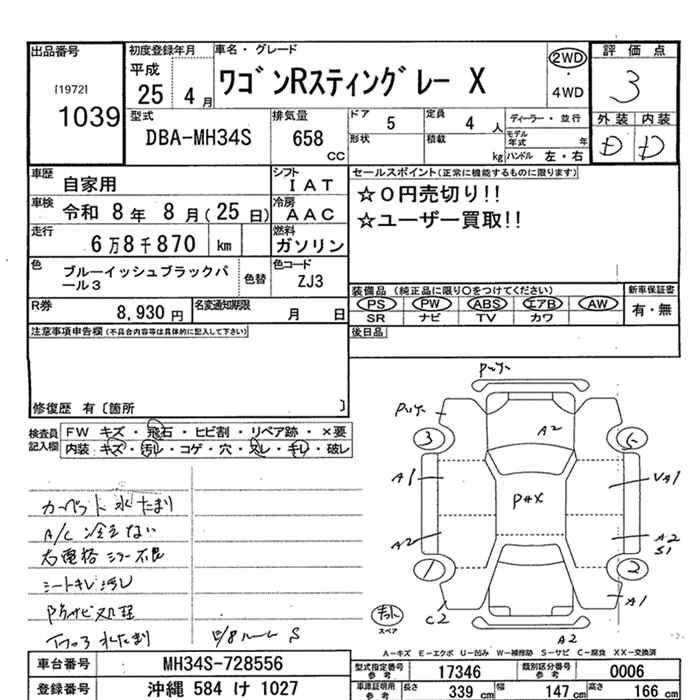 出品番号
[1972]
1039
初度登録年月
平成
25 4月
車名・グレード
ワゴンRスティングレー X
2WD
・
4WD
評価点
3
型式
DBA-MH34S
排気量
658
CC
ドア
5
定員
4 人
形状
積載
kg
ディーラー・並行
モデル年式 年
ハンドル 左・右
外装 内装
D D
車歴
自家用
シフト
IAT
車検
令和 8年 8月(25日)
冷房
AAC
走行
6万8千870 km
燃料
ガソリン
色
ブルーイッシュブラックパール3
色替
色コード
ZJ3
R券
8,930円
名変通知期限
月 日
セールスポイント(正常に機能するものに限ります)
☆0円売切り!!
☆ユーザー買取!!
装備品 (純正品に限り○をつけてください)
PS PW ABS エアB AW
SR ナビ TV カワ
新車保証書
有・無
後日品
注意事項申告欄(不具合内容等は具体的に記入して下さい)
修復歴 有〔箇所 〕
検査員記入欄
FW キズ・飛石・ヒビ割・リペア跡・×要
内装・キズ・汚レ・コゲ・穴・スレ・キレ・破レ
カーペット水たまり
A/C 冷えない
右電格ミラー不良
シートキレ汚レ
防サビ処理
A2
3
5
A1
VA1
P#X
A2
A2
S1
1
2
C2
A1
スペア
A2
A-キズ E-エクボ U-凹み W-補修跡 S-サビ C-腐食 XX-交換済
車台番号
MH34S-728556
登録番号
沖縄 584 け 1027
型式指定番号 参考
17346
類別区分番号 参考
0006
車庫証明用 参考
長さ 339 cm
幅 147 cm
高さ 166 cm